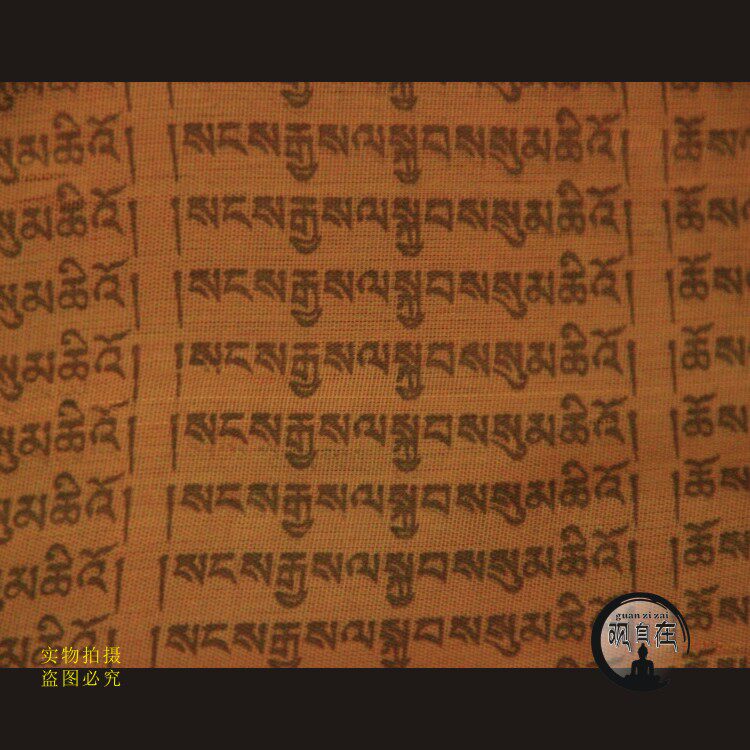 སུ་མཆིའོ། །སངས་རྒྱས་ལ་སྐྱབས་སུ་མཆིའོ། །ཆོས་
སུ་མཆིའོ། །སངས་རྒྱས་ལ་སྐྱབས་སུ་མཆིའོ། །ཆོས་
སུ་མཆིའོ། །སངས་རྒྱས་ལ་སྐྱབས་སུ་མཆིའོ། །ཆོས་
སུ་མཆིའོ། །སངས་རྒྱས་ལ་སྐྱབས་སུ་མཆིའོ། །ཆོས་
སུ་མཆིའོ། །སངས་རྒྱས་ལ་སྐྱབས་སུ་མཆིའོ། །ཆོས་
སུ་མཆིའོ། །སངས་རྒྱས་ལ་སྐྱབས་སུ་མཆིའོ། །ཆོས་
སུ་མཆིའོ། །སངས་རྒྱས་ལ་སྐྱབས་སུ་མཆིའོ། །ཆོས་
སུ་མཆིའོ། །སངས་རྒྱས་ལ་སྐྱབས་སུ་
guan zi zai
观自在
实物拍摄
盗图必究